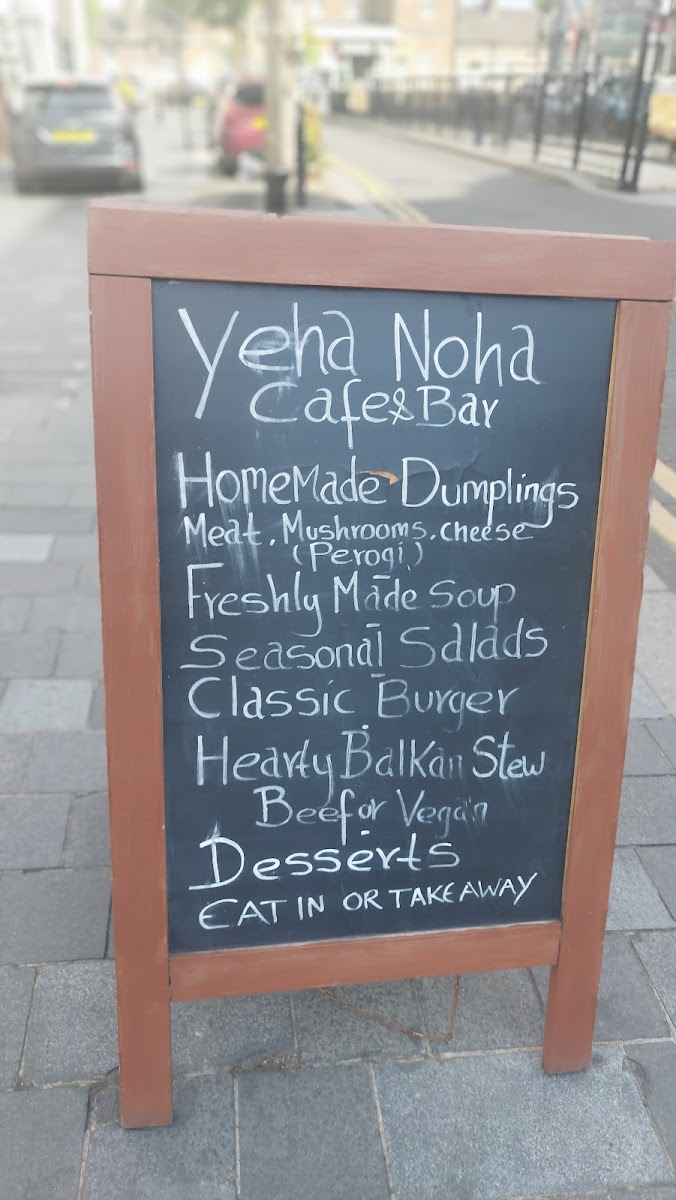 Yeha Noha
Cafe & Bar
HomeMade Dumplings
Meat, Mushrooms, cheese
(Perogi)
Freshly Made Soup
Seasonal Salads
Classic Burger
Hearty Balkan Stew
Beef or Vegan
Desserts
EAT IN OR TAKE AWAY